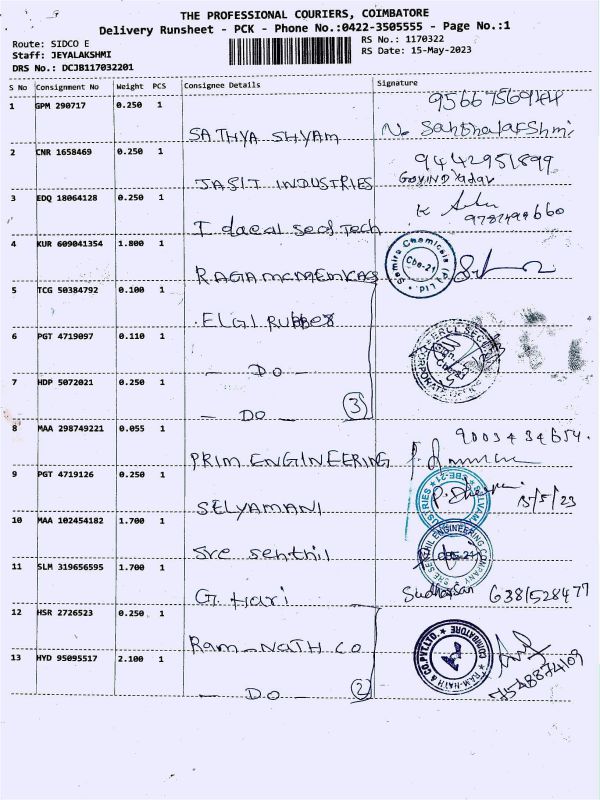 THE PROFESSIONAL COURIERS, COIMBATORE
Delivery Runsheet - PCK - Phone No.:0422-3505555 - Page No.:1
Route: SIDCO E
RS No.: 1170322
Staff: JEYALAKSHMI
RS Date: 15-May-2023
DRS No.: DCJB117032201
S No Consignment No Weight PCS Consignee Details Signature
1 GPM 290717 0.250 1
SATHYA SHYAM
2 CNR 1658469 0.250 1
9442951899
JASIT INDUSTRIES
3 EDQ 18064128 0.250 1
4 KUR 609041354 1.800 1
Cbe-21
5 TCG 50384792 0.100 1
ELGI RUBBER
6 PGT 4719097 0.110 1
— DO —
7 HDP 5072021 0.250 1
— DO — 3
8 MAA 298749221 0.055 1
PRIM ENGINEERING
9 PGT 4719126 0.250 1
15/5/23
SELYAMANI
10 MAA 102454182 1.700 1
Sre senthil
11 SLM 319656595 1.700 1
G. Hari
Sudharsan 6381528477
12 HSR 2726523 0.250 1
RAM-NATH CO
RAM-NATH & CO.PVT.LTD. COIMBATORE
13 HYD 95095517 2.100 1
— DO — 2
7548874109